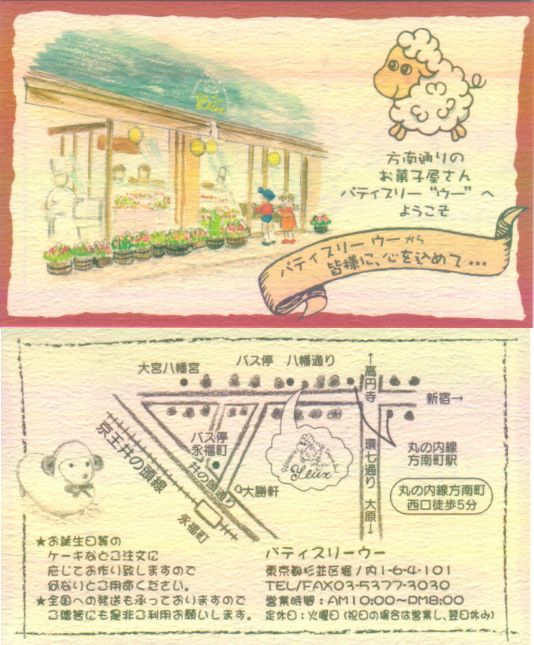 Yeux
方南通りの
お菓子屋さん
パティスリー“ウー”へ
ようこそ
パティスリー ウーから
皆様に、心を込めて・・・
大宮八幡宮
バス停 八幡通り
←高円寺
新宿→
京王井の頭線
バス停
永福町
井の頭通り
大勝軒
永福町
Yeux
環七通り
大原→
丸の内線
方南町駅
丸の内線方南町
西口徒歩5分
★お誕生日等の
ケーキなどご注文に
応じてお作り致しますので
なんなりとご用命ください。
★全国への発送も承っておりますので
ご贈答にも是非ご利用お願いします。
パティスリーウー
東京都杉並区堀ノ内1-6-4-101
TEL/FAX03-5377-3030
営業時間：AM10:00～PM8:00
定休日：火曜日(祝日の場合は営業し、翌日休み)